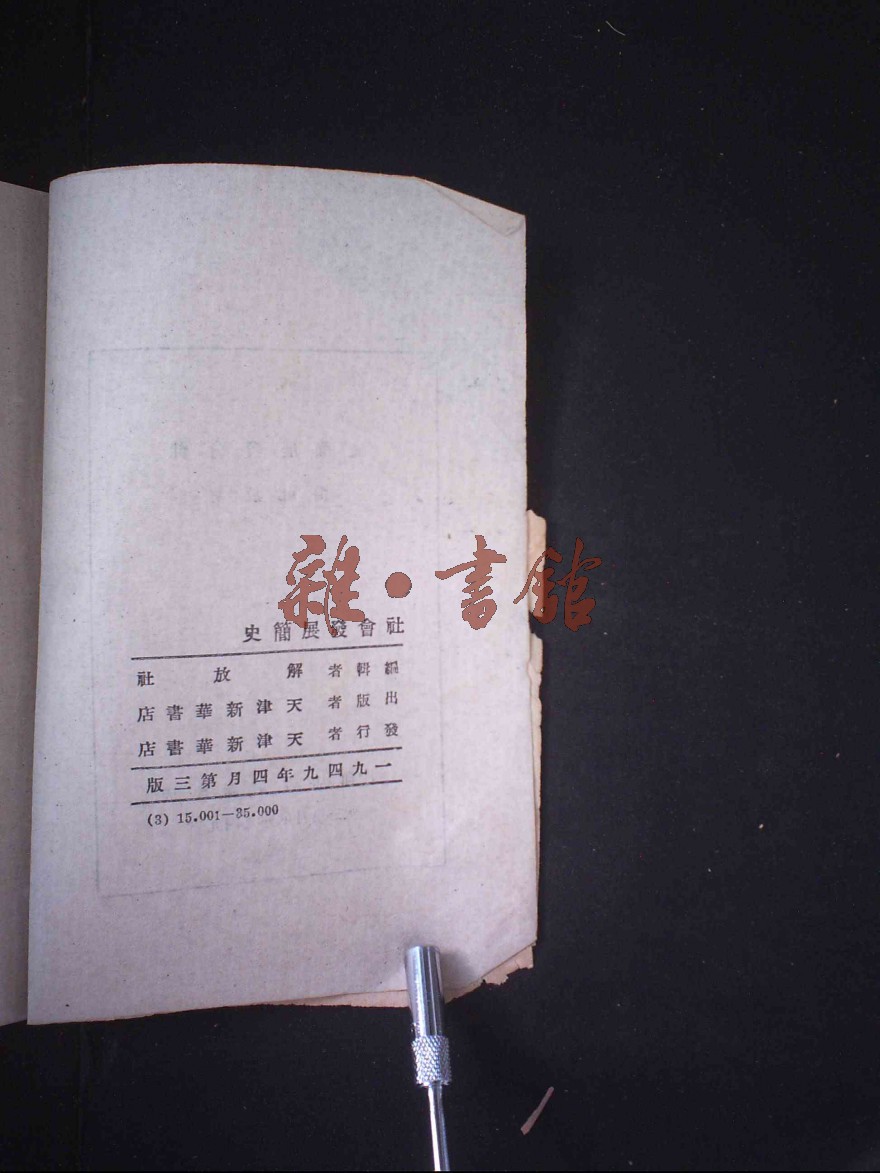 雜·書館
社會發展簡史
編輯者 解放社
出版者 天津新華書店
發行者 天津新華書店
一九四九年四月第三版
(3) 15.001—35.000